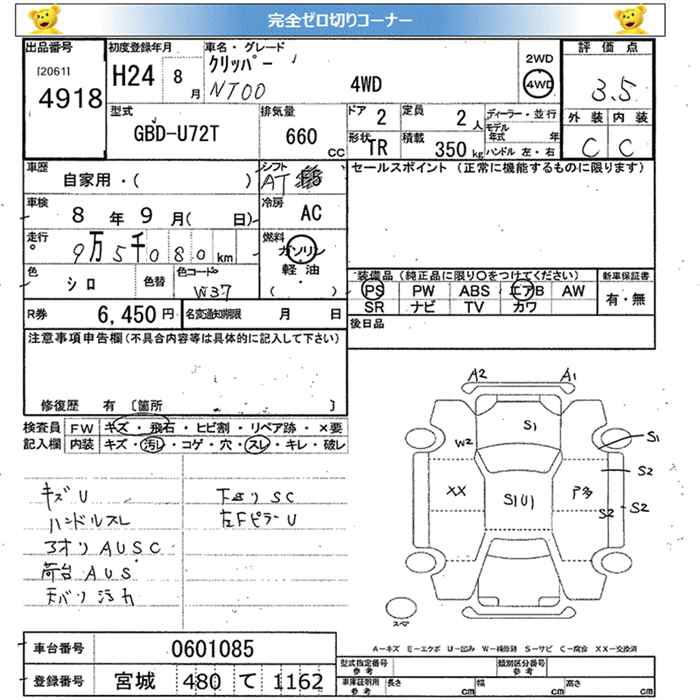 完全ゼロ切りコーナー
出品番号 初度登録年月 車名・グレード 2WD 評価点
[2061] 4918 H24 8月 クリッパー NT00 4WD 4WD 3.5
型式 排気量 ドア 定員 ディーラー・並行 外装 内装
GBD-U72T 660cc 2 2人 モデル年式 年 C C
形状 TR 積載 350kg ハンドル 左・右
車歴 シフト セールスポイント (正常に機能するものに限ります)
自家用・( ) AT
車検 8年9月( 日) 冷房 AC
走行 9万5千080km 燃料 ガソリン
軽油
( ・ )
色 シロ 色替 色コード W37
装備品 (純正品に限り○をつけてください) 新車保証書
PS PW ABS エアB AW 有・無
SR ナビ TV カワ
R券 6,450円 名変通知期限 月 日 後日品
注意事項申告欄 (不具合内容等は具体的に記入して下さい)
修復歴 有 [箇所 ]
検査員 FW キズ・飛石・ヒビ割・リペア跡・×要
記入欄 内装 キズ・汚レ・コゲ・穴・スレ・キレ・破レ
キズU 下回りSC
ハンドルスレ 左FピラーU
3オリAUSC
荷台AUS
天バリ汚れ
A2 A1
S1
W2 S1
S2
XX S1U1
S2 S2
スペア
A-キズ E-エクボ U-凹み W-補修跡 S-サビ C-腐食 XX-交換済
車台番号 0601085
登録番号 宮城 480 て 1162
型式指定番号 参考 類別区分番号 参考
車庫証明用 参考 長さ cm 幅 cm 高さ cm